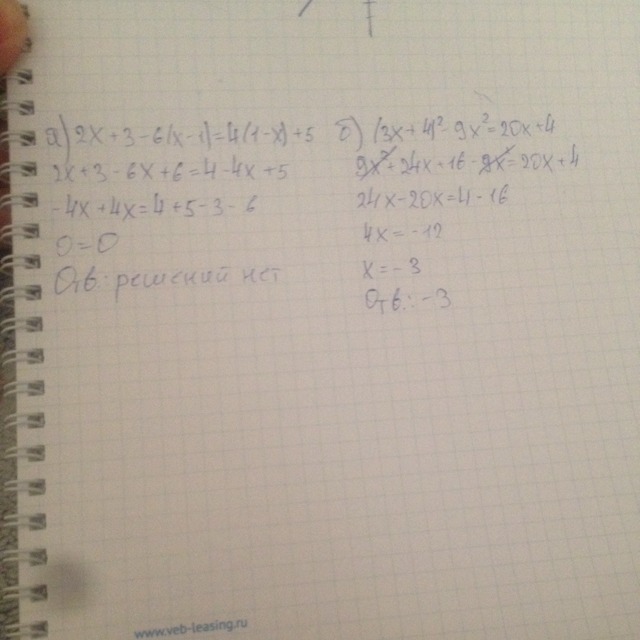 а) 2x+3-6(x-1)=4(1-x)+5
2x+3-6x+6=4-4x+5
-4x+4x=4+5-3-6
0=0
Отв: решений нет
б) (3x+4)²-9x²=20x+4
9x²+24x+16-9x²=20x+4
24x-20x=4-16
4x=-12
x=-3
Отв.: -3
www.veb-leasing.ru